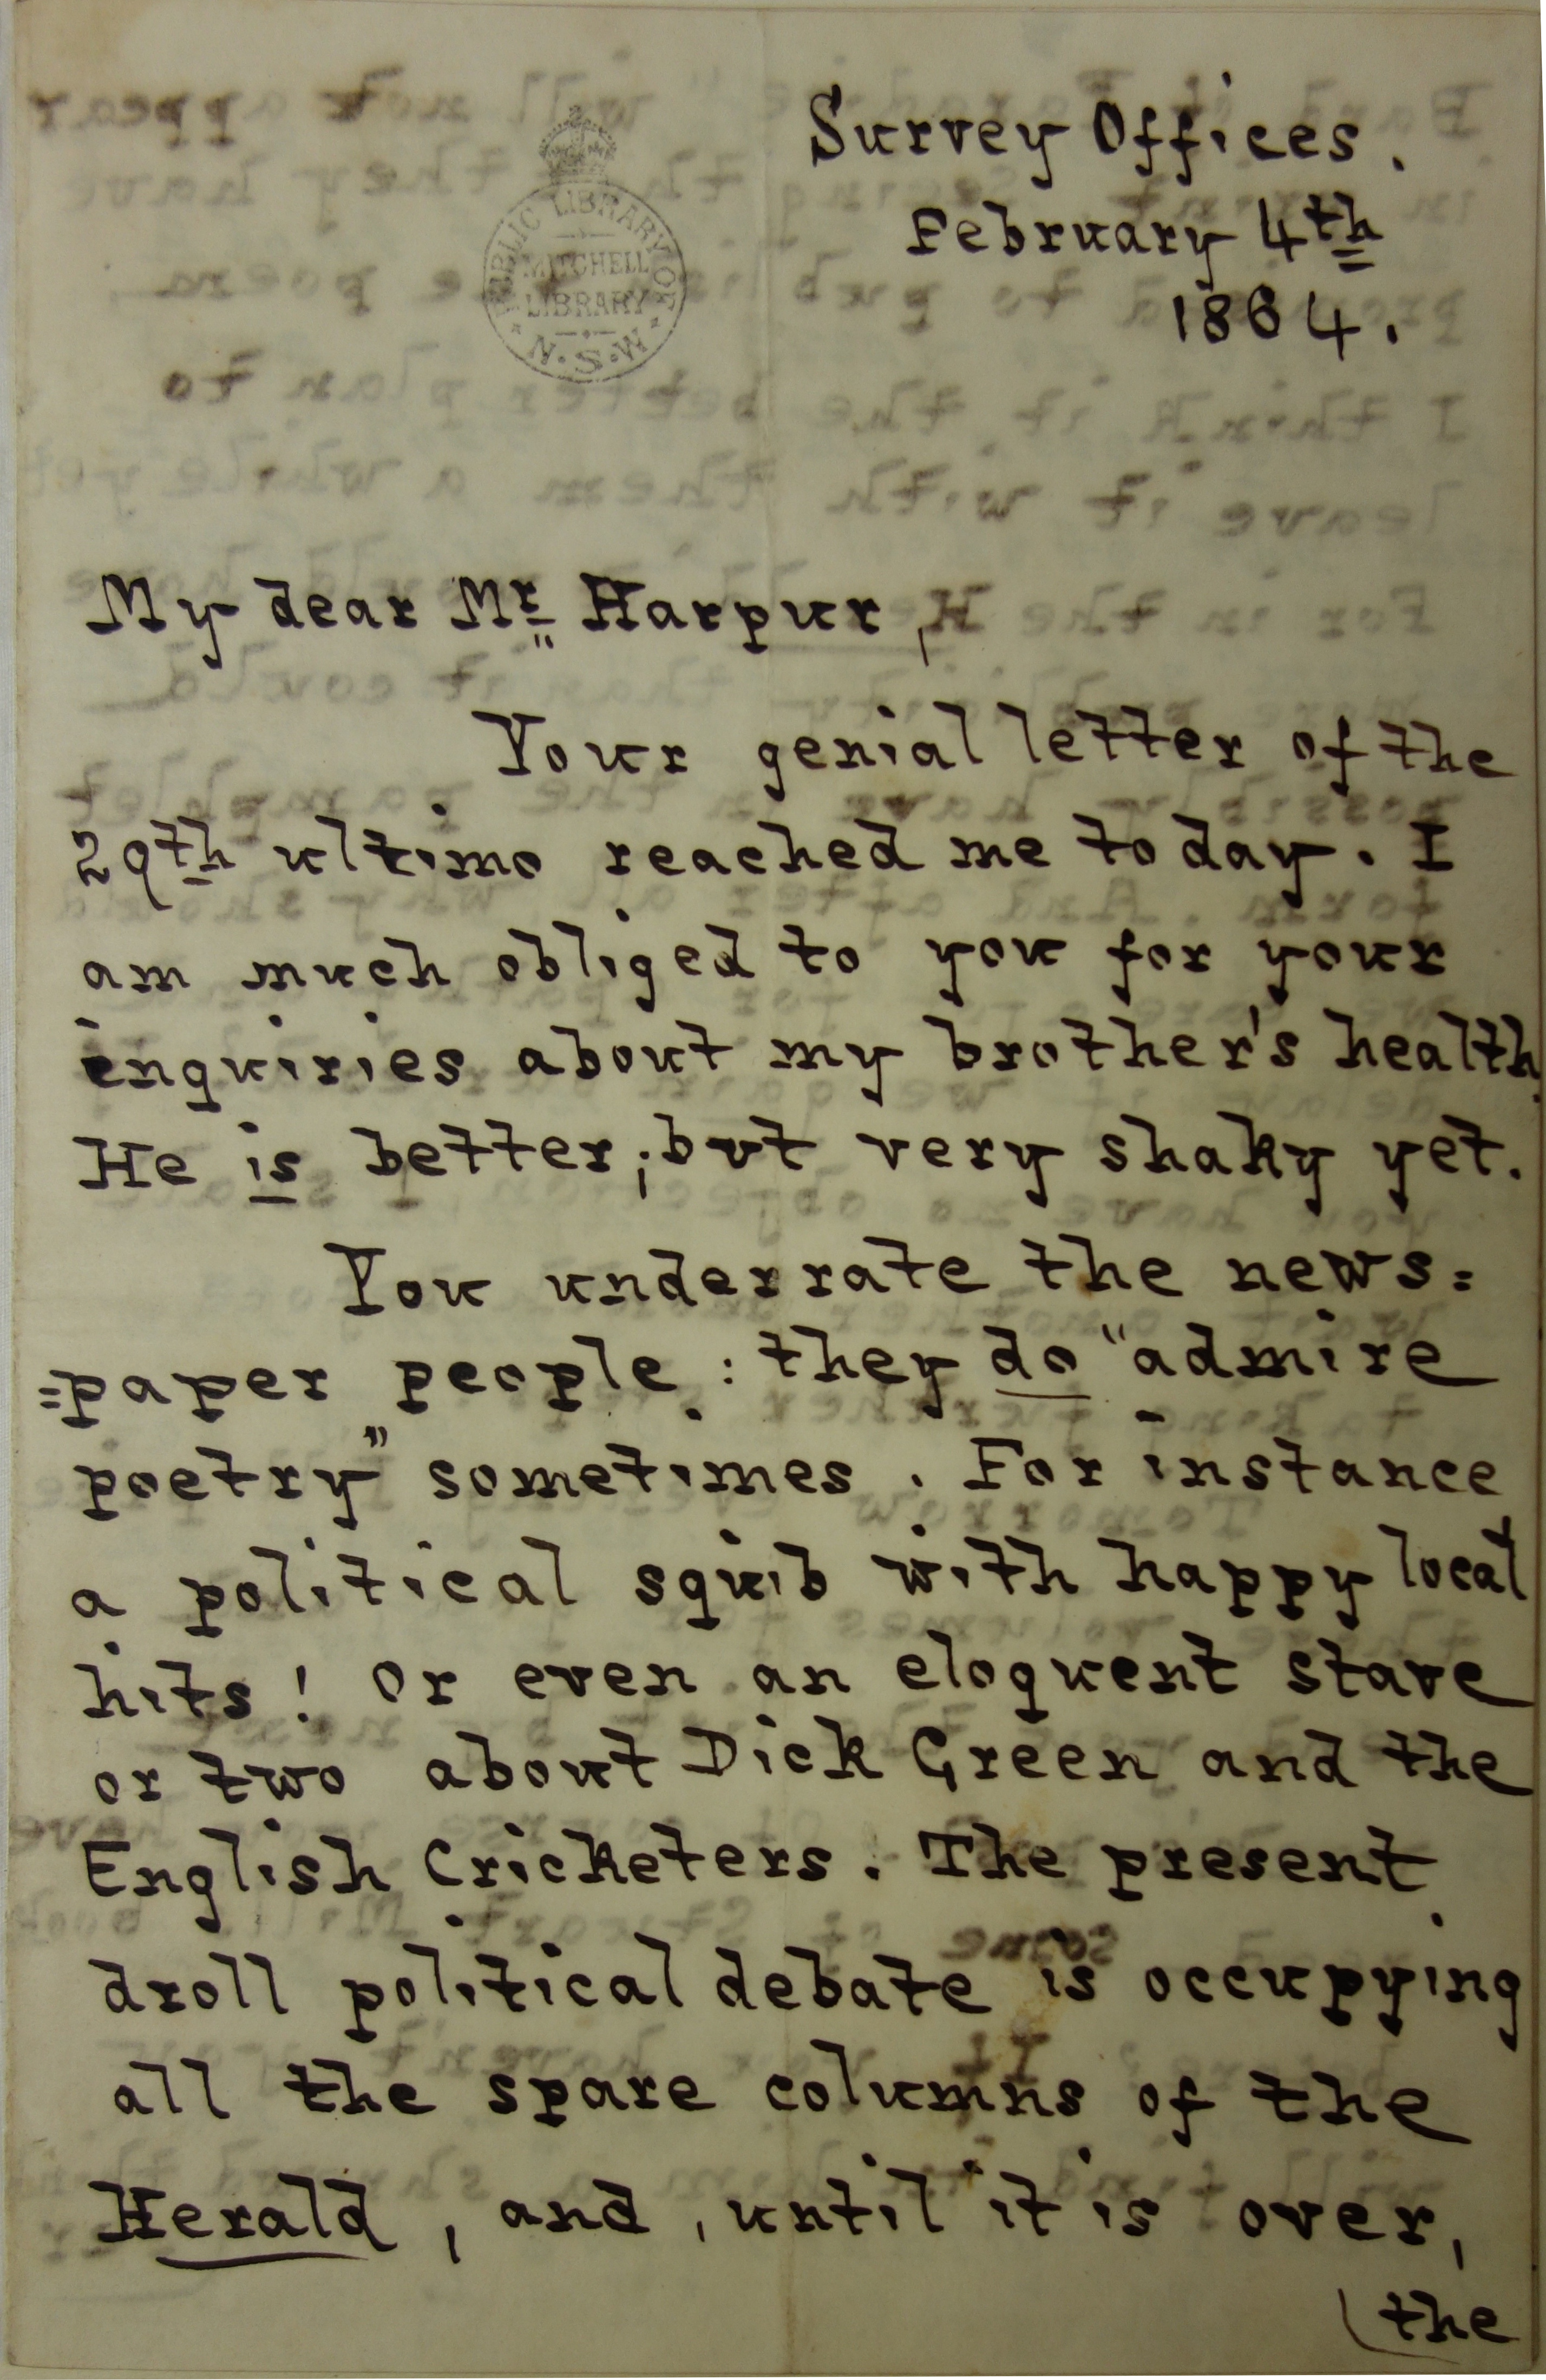 Survey Offices.
February 4th
1864.
PUBLIC LIBRARY OF
MITCHELL
LIBRARY
N.S.W
My dear Mr Harpur,
Your genial letter of the
29th ultimo reached me today. I
am much obliged to you for your
enquiries about my brother's health.
He is better; but very shaky yet.
You underrate the news=
=paper people: they do "admire
poetry" sometimes. For instance
a political squib with happy local
hits! Or even an eloquent stave
or two about Dick Green and the
English Cricketers. The present
droll political debate is occupying
all the spare columns of the
Herald, and, until it is over,
(the